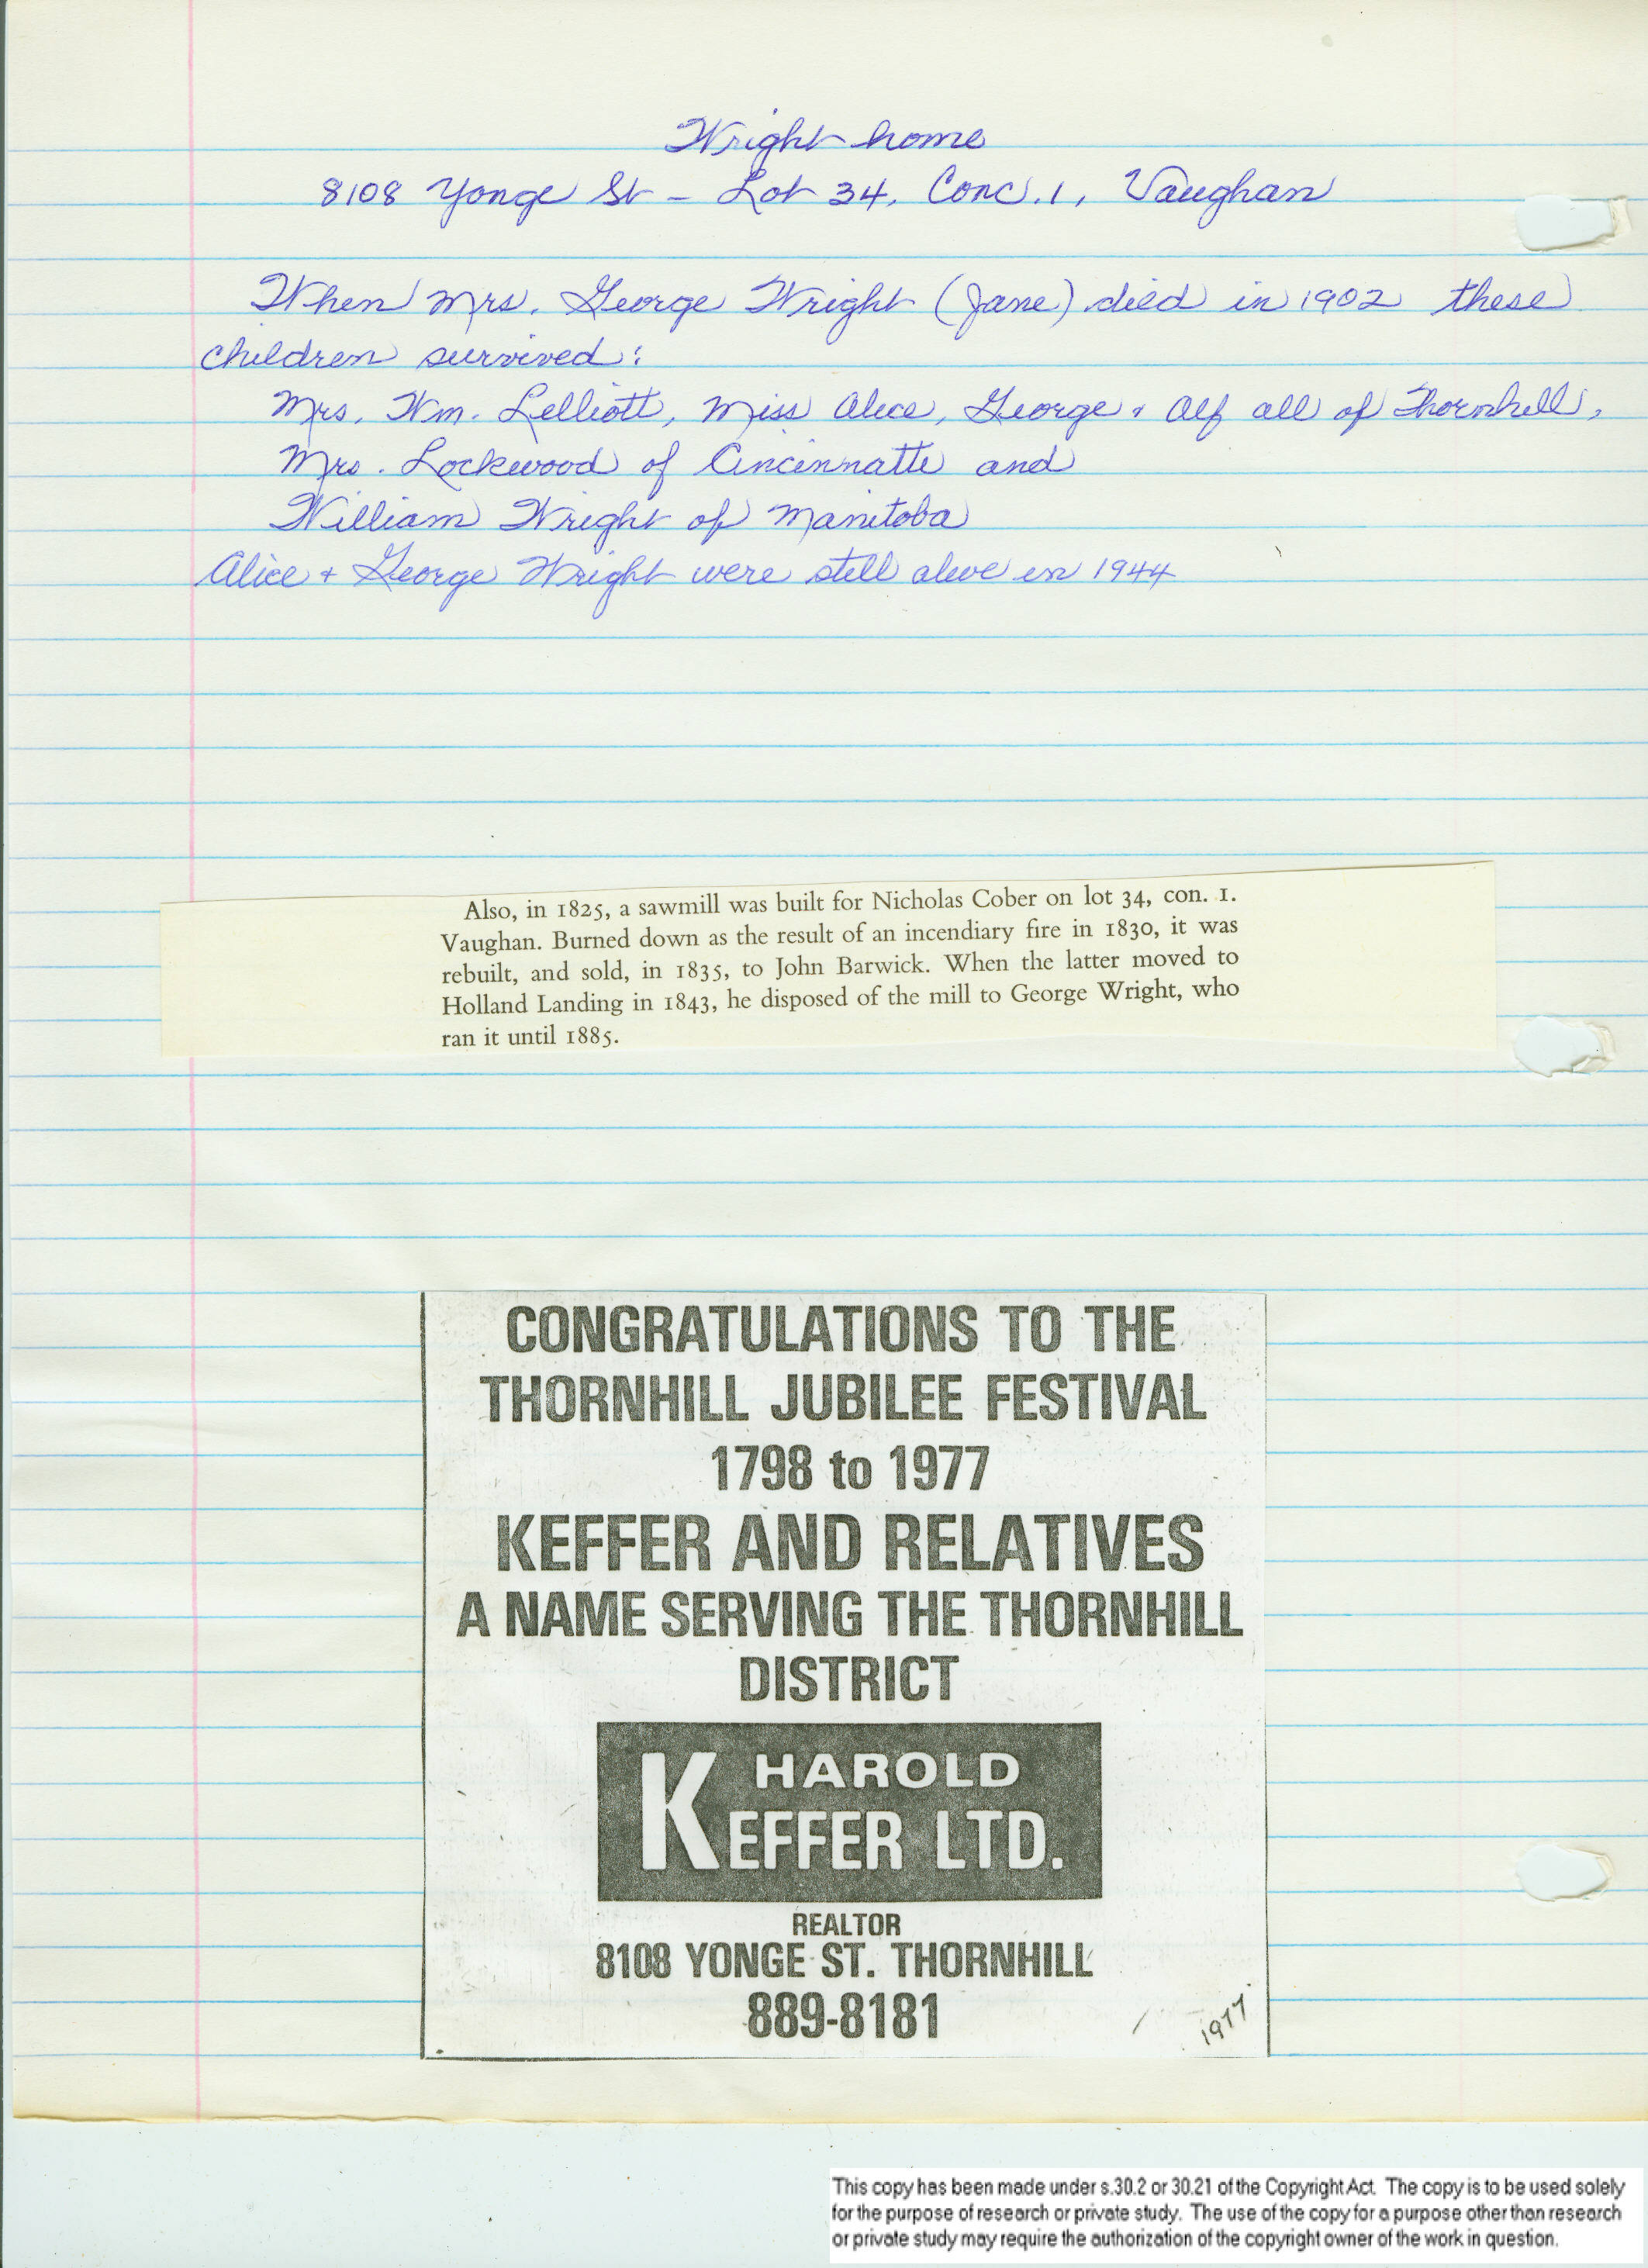 Wright home
8108 Yonge St - Lot 34, Conc. 1, Vaughan
When Mrs. George Wright (Jane) died in 1902 these
children survived:
Mrs. Wm. Lelliott, Miss Alice, George & Alf all of Thornhill,
Mrs. Lockwood of Cincinnatte and
William Wright of Manitoba
Alice + George Wright were still alive in 1944
Also, in 1825, a sawmill was built for Nicholas Cober on lot 34, con. 1.
Vaughan. Burned down as the result of an incendiary fire in 1830, it was
rebuilt, and sold, in 1835, to John Barwick. When the latter moved to
Holland Landing in 1843, he disposed of the mill to George Wright, who
ran it until 1885.
CONGRATULATIONS TO THE
THORNHILL JUBILEE FESTIVAL
1798 to 1977
KEFFER AND RELATIVES
A NAME SERVING THE THORNHILL
DISTRICT
HAROLD
KEFFER LTD.
REALTOR
8108 YONGE ST. THORNHILL
889-8181
1977
This copy has been made under s.30.2 or 30.21 of the Copyright Act. The copy is to be used solely
for the purpose of research or private study. The use of the copy for a purpose other than research
or private study may require the authorization of the copyright owner of the work in question.